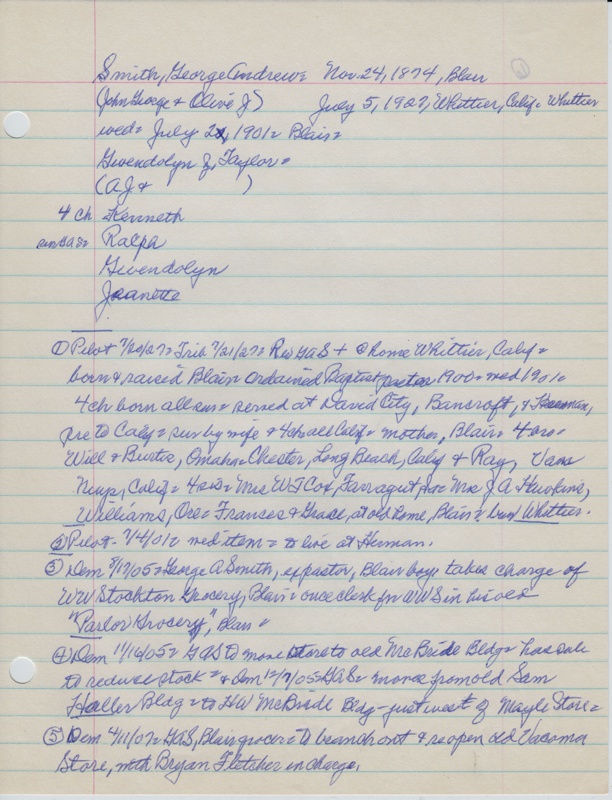 Smith, George Andrew= Nov. 24, 1874, Blair
(John George & Olive J) July 5, 1927, Whittier, Calif= Whittier
wed= July 2, 1901= Blair=
Gwendolyn J, Taylor=
(AJ & )
4 ch Kenneth
Ralph
Gwendolyn
Jeanette
① Pilot 7/20/27= Trib 7/21/27= Rev GAS + @ home Whittier, Calif=
born & raised Blair= ordained Baptist pastor 1900= wed 1901=
4 ch born all sur= served at David City, Bancroft, &
pre to Calif= sur by wife & 4 ch all Calif= mother, Blair= 4 bro=
Will & Burtis, Omaha= Chester, Long Beach, Calif & Ray, Van
Nuys, Calif= 4 sis= Mrs WT Cox, Farragut, Mrs J A Hawkins,
Williams, Ore= Frances & Grace, at old home, Blair= bur Whittier.
② Pilot- 7/4/01= wed item= to live at Herman.
③ Dem 8/17/05= George A Smith, expastor, Blair boy= takes charge of
WW Stockton Grocery, Blair= once clerk for WWS in his old
"Parlor Grocery", Blair=
④ Dem 11/16/05= GAS to move store to old McBride Bldg= has sale
to reduce stock= & Dem 12/7/05= GAS= moves from old Sam
Haller Bldg= to HW McBride Bldg- just west of Mayle Store=
⑤ Dem 4/11/07= GAS, Blair grocer= To branch out & reopen old Vacoma
Store, with Bryan Fletcher in charge.